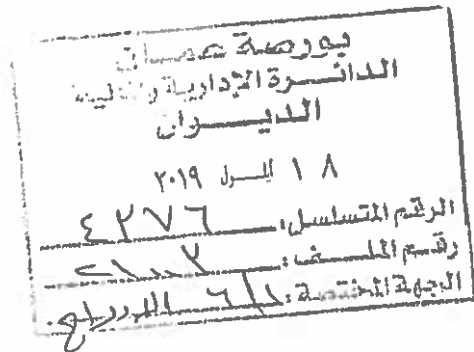 بورصة عمان
الدائرة الإدارية والمالية
الديوان
١٨ أيلول ٢٠١٩
الرقم المتسلسل: ٤٢٧٦
رقم الملف:
الجهة المختصة: